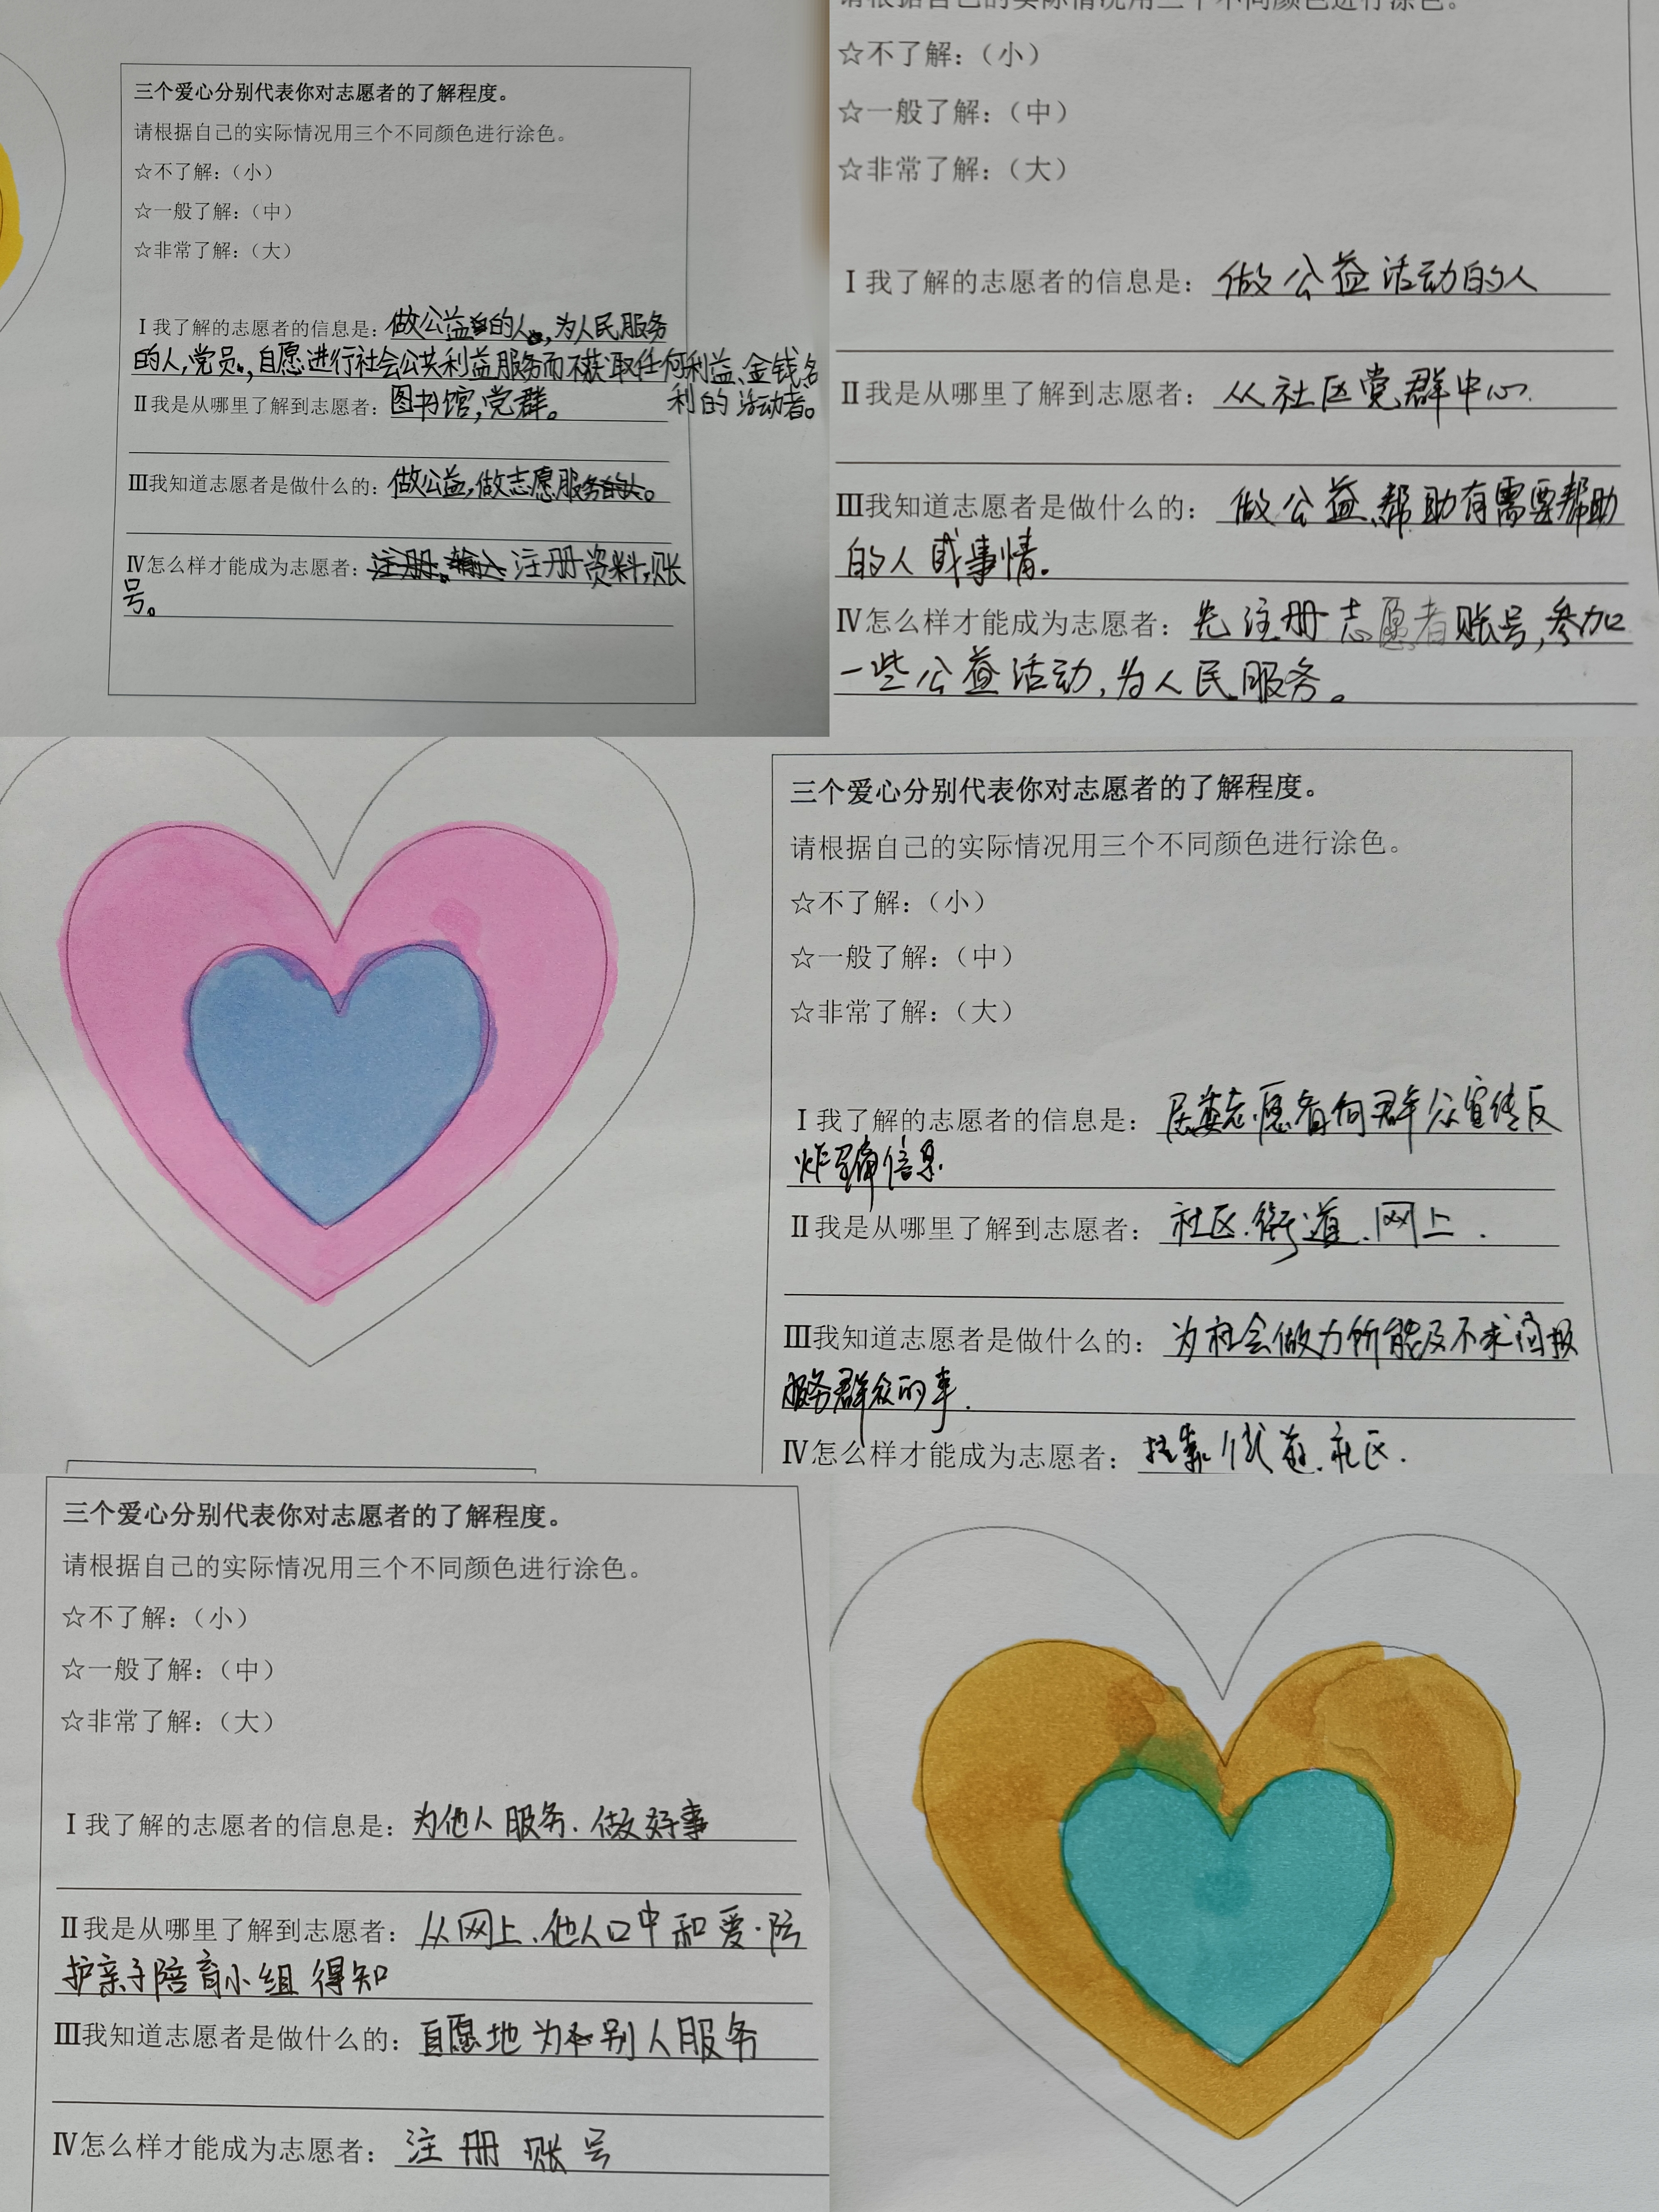 三个爱心分别代表你对志愿者的了解程度。
请根据自己的实际情况用三个不同颜色进行涂色。
☆不了解：（小）
☆一般了解：（中）
☆非常了解：（大）
Ⅰ我了解的志愿者的信息是：做公益的人，为人民服务
的人，党员，自愿进行社会公共利益服务而不获取任何利益、金钱、名
利的活动者。
Ⅱ我是从哪里了解到志愿者：图书馆，党群。
Ⅲ我知道志愿者是做什么的：做公益，做志愿服务。
Ⅳ怎么样才能成为志愿者：注册资料，账
号。
请根据自己的实际情况用三个不同颜色进行涂色。
☆不了解：（小）
☆一般了解：（中）
☆非常了解：（大）
Ⅰ我了解的志愿者的信息是：做公益活动的人
Ⅱ我是从哪里了解到志愿者：从社区党群中心.
Ⅲ我知道志愿者是做什么的：做公益、帮助有需要帮助
的人或事情.
Ⅳ怎么样才能成为志愿者：先注册志愿者账号，参加
一些公益活动，为人民服务。
三个爱心分别代表你对志愿者的了解程度。
请根据自己的实际情况用三个不同颜色进行涂色。
☆不了解：（小）
☆一般了解：（中）
☆非常了解：（大）
Ⅰ我了解的志愿者的信息是：居委志愿者向群众宣传反
炸骗信息.
Ⅱ我是从哪里了解到志愿者：社区.街道.网上.
Ⅲ我知道志愿者是做什么的：为社会做力所能及不求回报
服务群众的事.
Ⅳ怎么样才能成为志愿者：街道.社区.
三个爱心分别代表你对志愿者的了解程度。
请根据自己的实际情况用三个不同颜色进行涂色。
☆不了解：（小）
☆一般了解：（中）
☆非常了解：（大）
Ⅰ我了解的志愿者的信息是：为他人服务.做好事
Ⅱ我是从哪里了解到志愿者：从网上、他人口中和爱·陪
护亲子陪育小组得知
Ⅲ我知道志愿者是做什么的：自愿地为别人服务
Ⅳ怎么样才能成为志愿者：注册账号